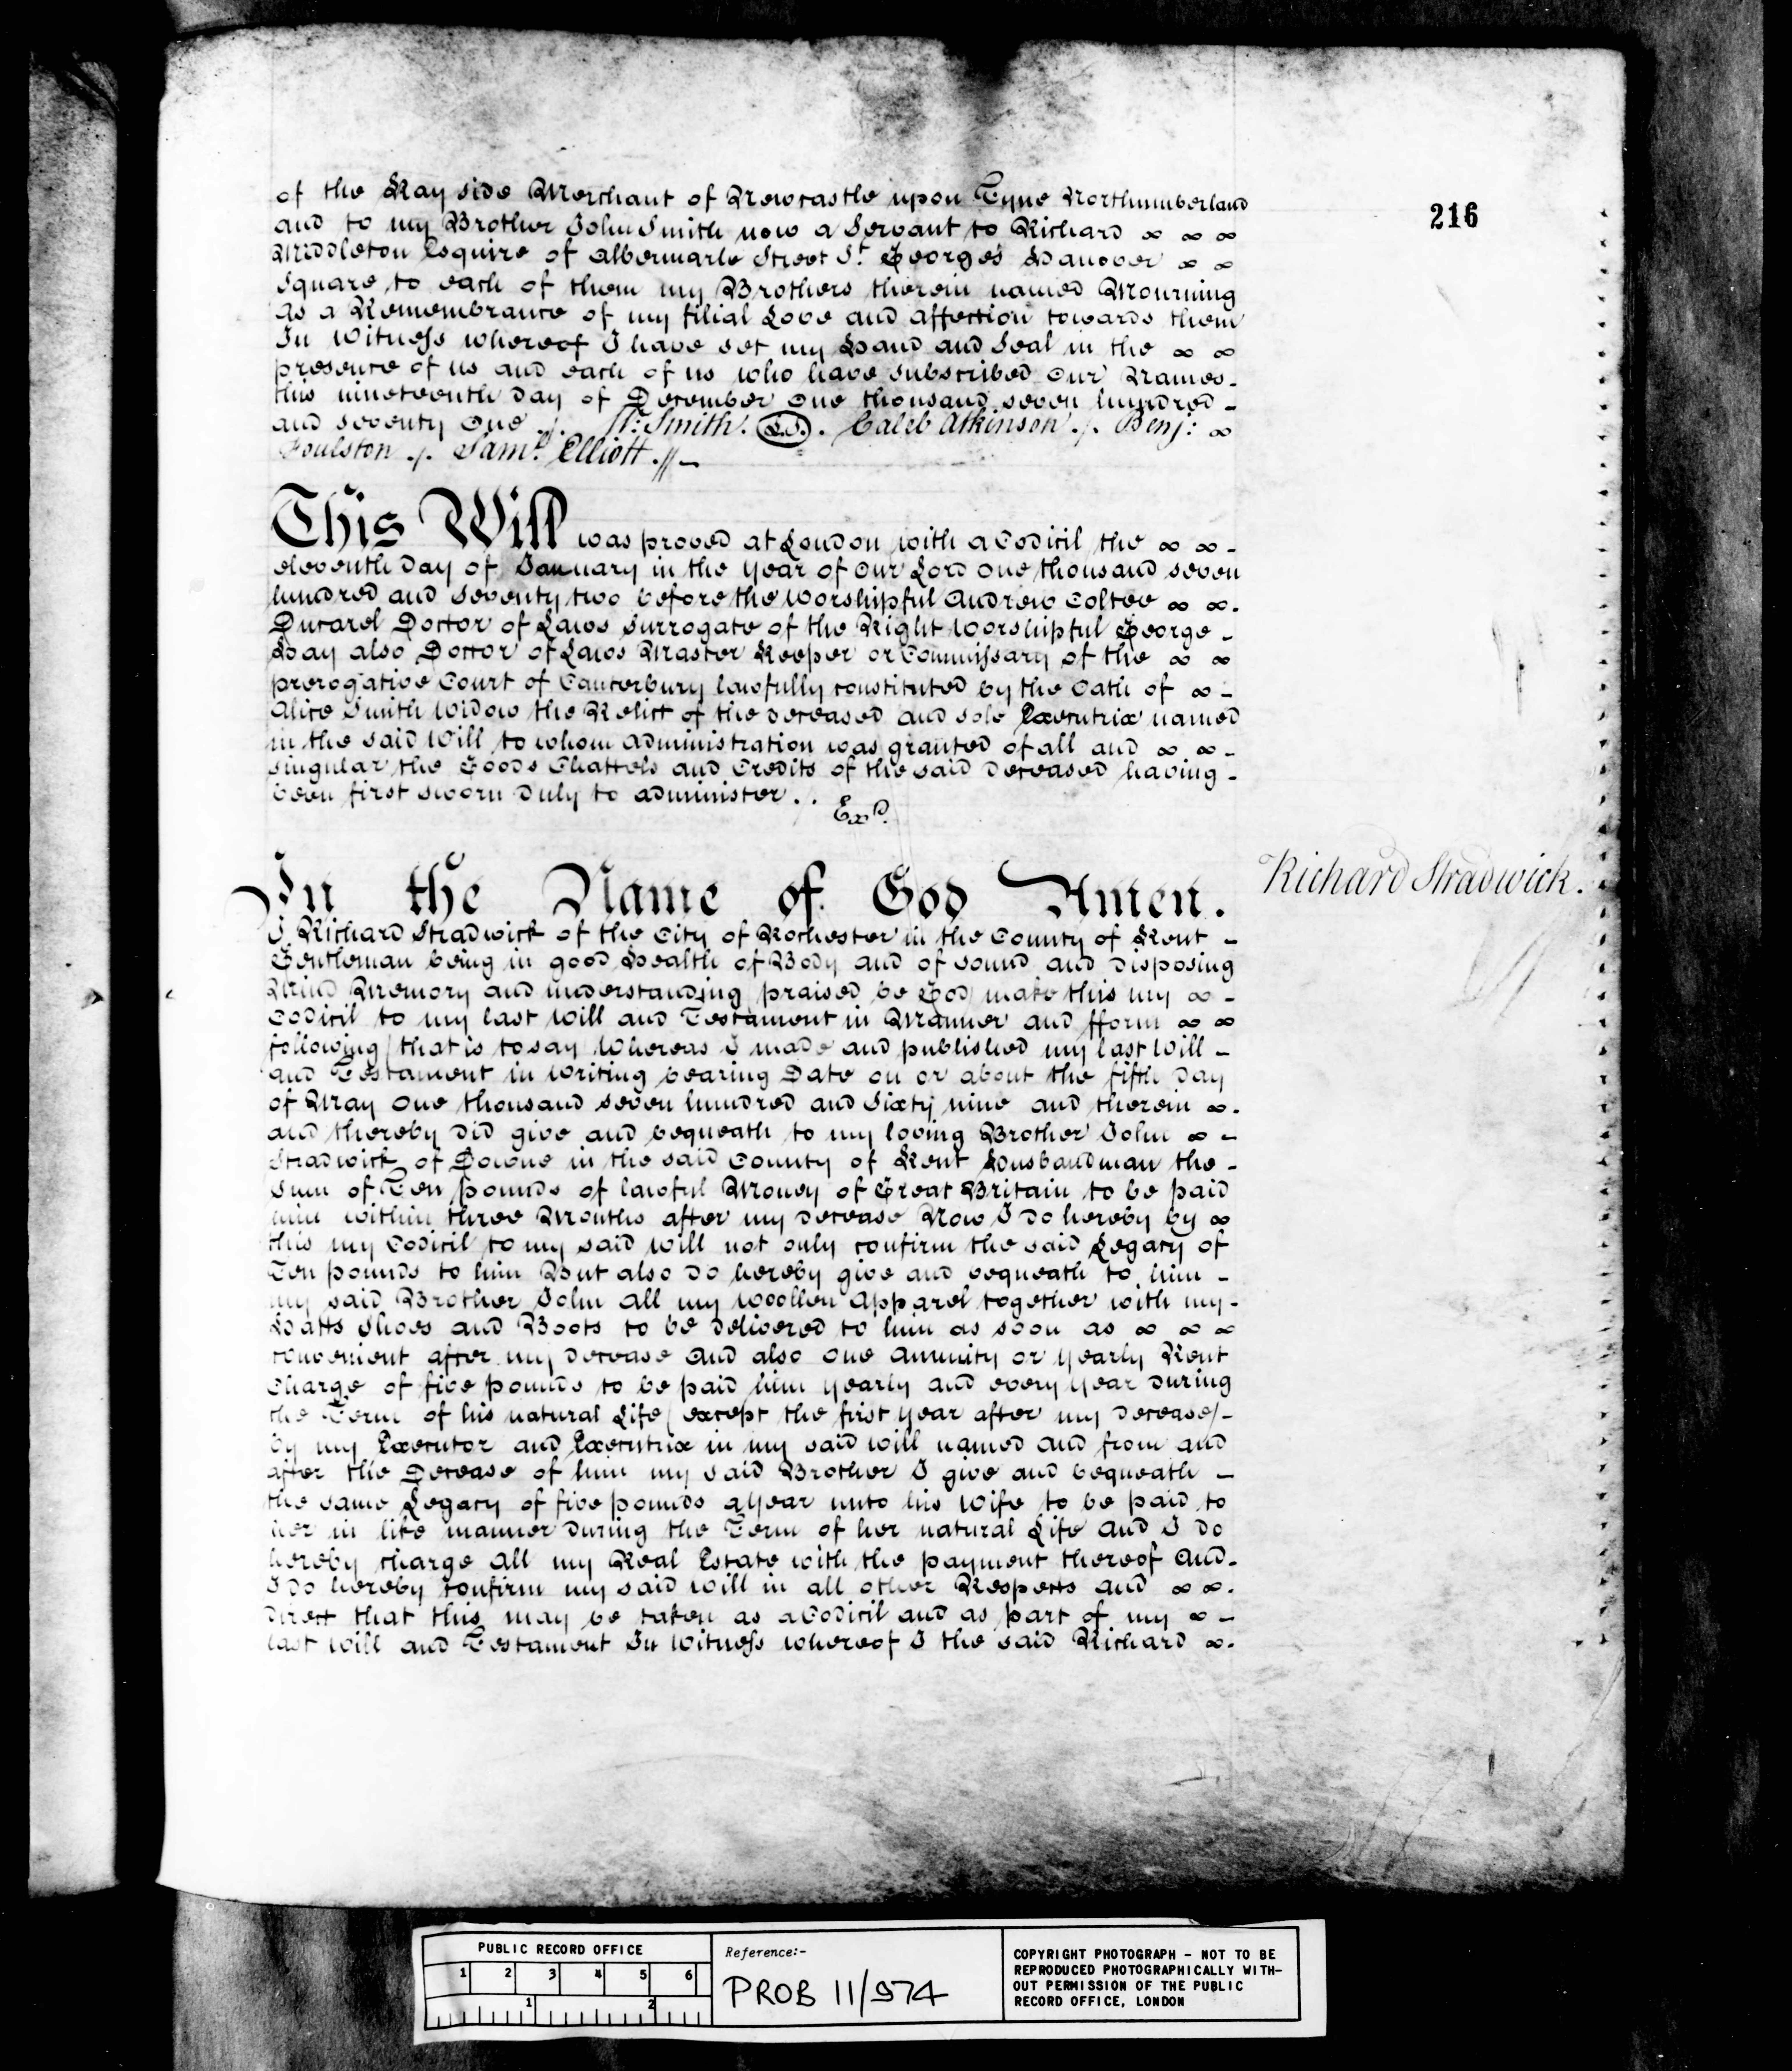 216
of the Kay side Merchant of Newcastle upon Tyne Northumberland
and to my Brother John Smith now a Servant to Richard
Middleton Esquire of albermarle Street St. George's Hanover
Square to each of them my Brothers therein named Mourning
As a Remembrance of my filial Love and affection towards them
In Witness whereof I have set my Hand and Seal in the
presence of us and each of us who have subscribed Our Names -
this nineteenth day of December One thousand seven hundred -
and seventy One ./. Smith. (L.S.). Caleb Atkinson ./. Benj:
Foulston ./. Saml. Elliott .//-
This Will was proved at London with a Codicil the -
eleventh Day of January in the year of Our Lord One thousand seven
hundred and seventy two before the Worshipful Andrew Coltee .
Ducarel Doctor of Laws Surrogate of the Right Worshipful George -
Hay also Doctor of Laws Master Keeper or Commissary of the
prerogative Court of Canterbury lawfully constituted by the Oath of -
Alice Smith Widow the Relict of the deceased and sole Executrix named
in the said Will to whom administration was granted of all and -
singular the Goods Chattels and Credits of the said deceased having -
been first sworn duly to administer ./.
Exd.
Richard Stradwick.
In the Name of God Amen.
I Richard Stradwick of the City of Rochester in the County of Kent -
Gentleman being in good Health of Body and of sound and disposing
Mind Memory and understanding praised be God make this my -
Codicil to my last Will and Testament in Manner and fform
following (that is to say) Whereas I made and published my last Will -
and Testament in Writing bearing Date on or about the fifth day
of May One thousand seven hundred and Sixty nine and therein .
and thereby did give and bequeath to my loving Brother John -
Stradwick of Downe in the said County of Kent Husbandman the -
Sum of Ten pounds of lawful Money of Great Britain to be paid
him within three Months after my decease Now I do hereby by
this my Codicil to my said will not only confirm the said Legacy of
Ten pounds to him But also do hereby give and bequeath to him -
my said Brother John all my Woollen Apparel together with my -
Hatts Shoes and Boots to be delivered to him as soon as
convenient after my decease and also one Annuity or yearly Rent
Charge of five pounds to be paid him yearly and every year during
the Term of his natural Life (except the first year after my decease) -
by my Executor and Executrix in my said will named and from and
after the Decease of him my said Brother I give and bequeath -
the same Legacy of five pounds a year unto his Wife to be paid to
her in like manner during the Term of her natural Life And I do
hereby charge all my Real Estate with the payment thereof And -
I do hereby confirm my said will in all other Respects and .
direct that this may be taken as a Codicil and as part of my -
last Will and Testament In Witness whereof I the said Richard .
PUBLIC RECORD OFFICE
1 2 3 4 5 6
1 2
Reference:-
PROB 11/974
COPYRIGHT PHOTOGRAPH - NOT TO BE
REPRODUCED PHOTOGRAPHICALLY WITH-
OUT PERMISSION OF THE PUBLIC
RECORD OFFICE, LONDON